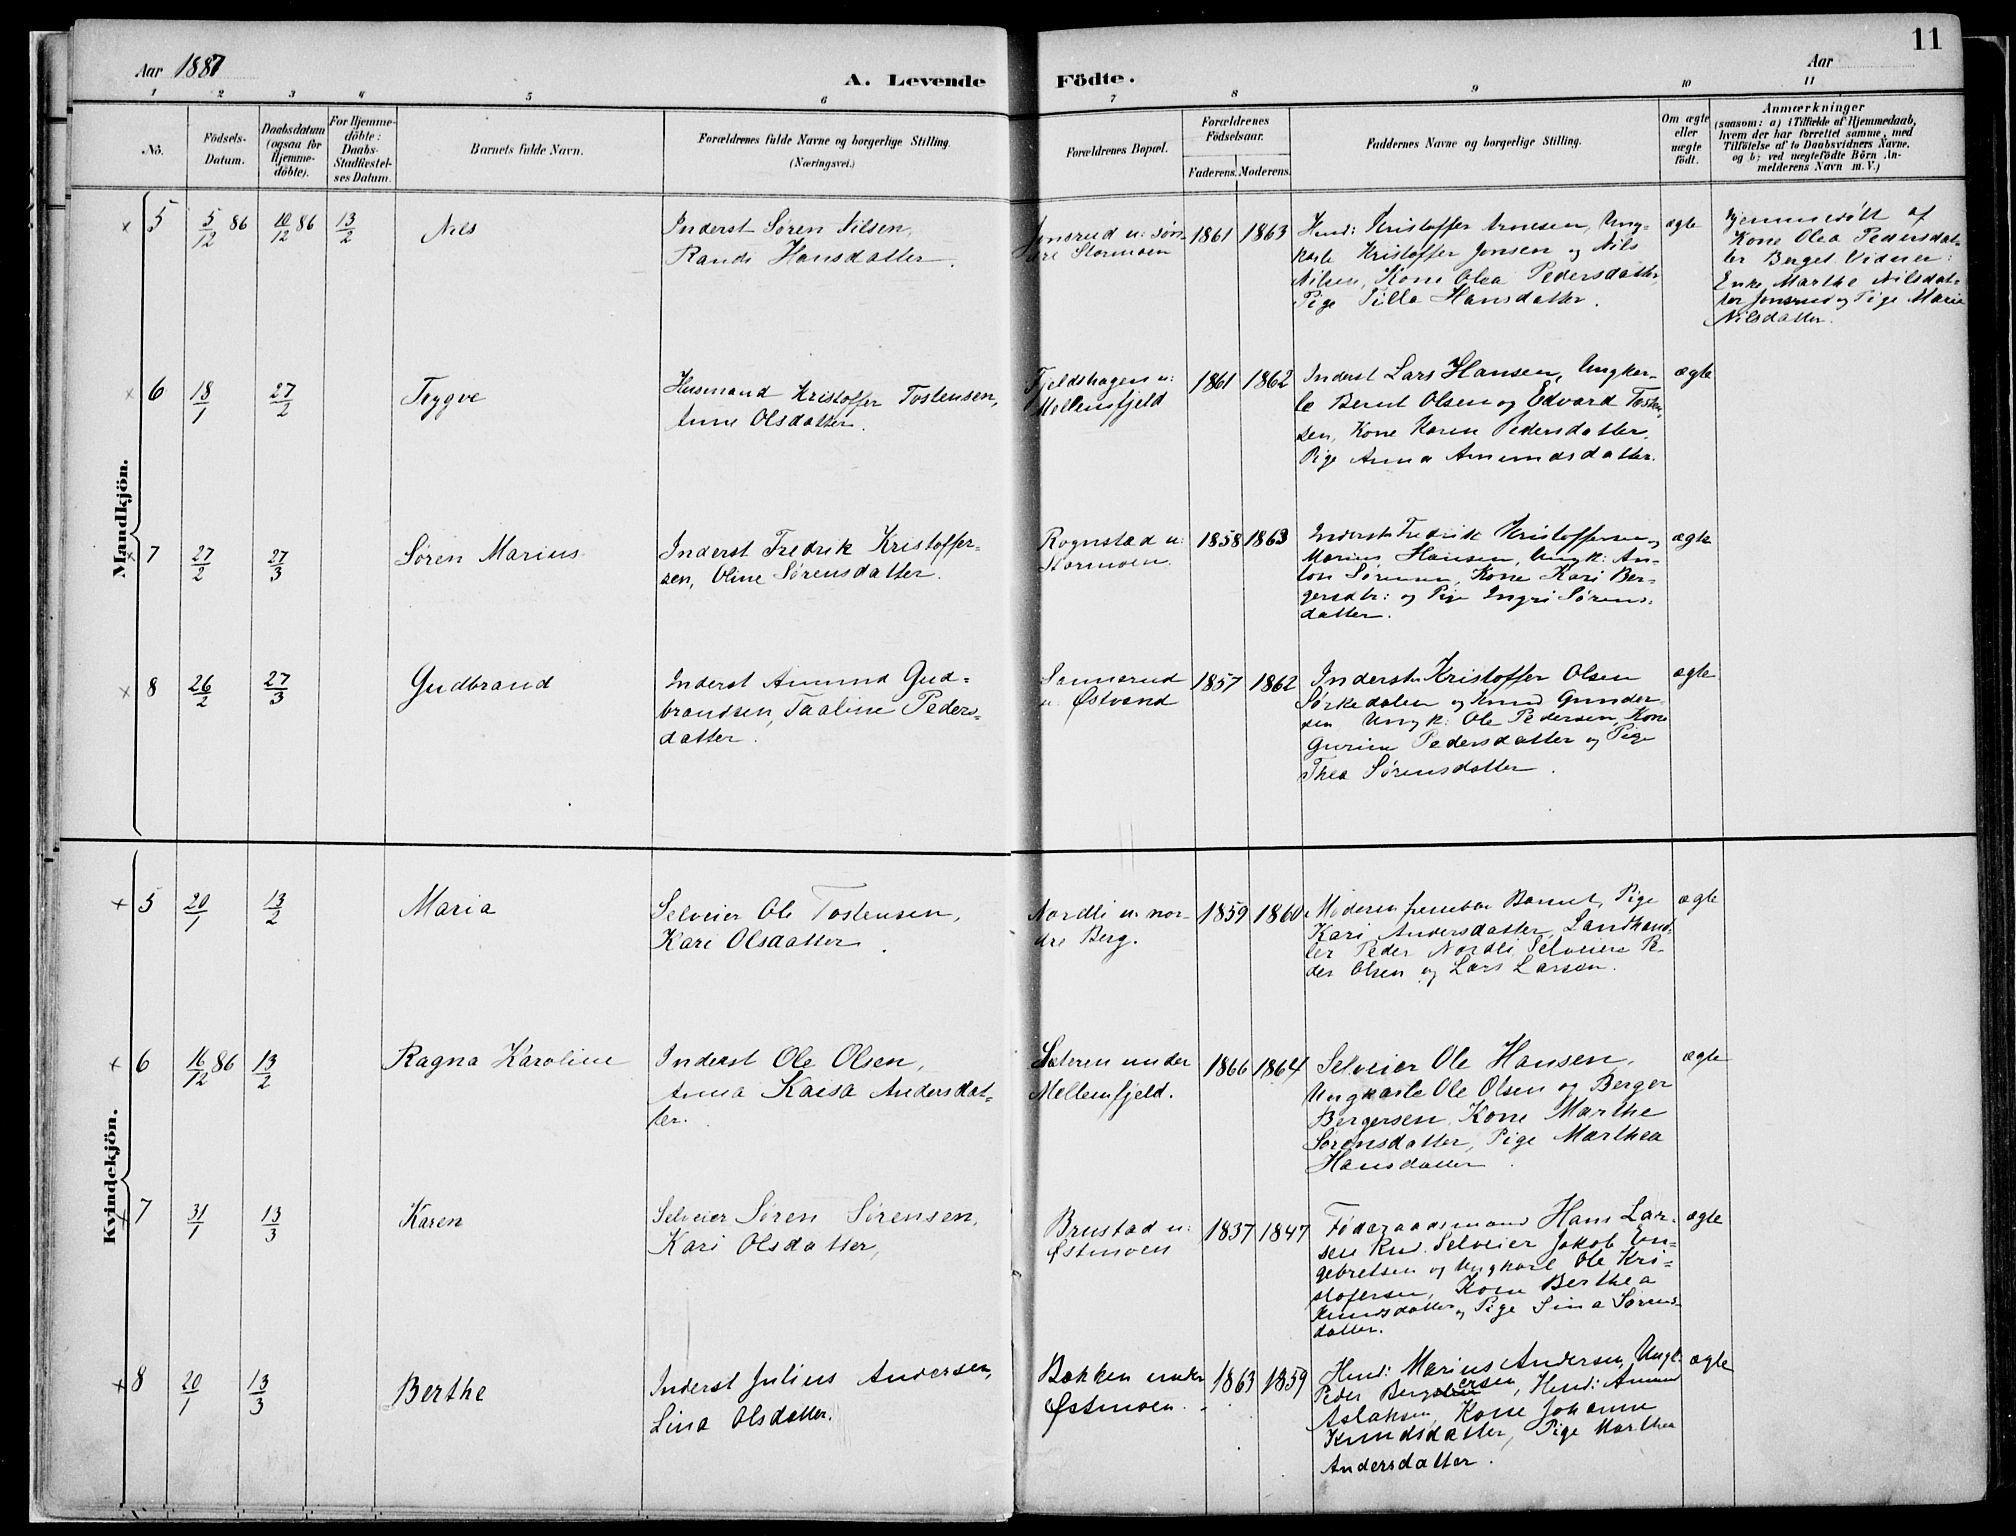 11
Aar 1887
A. Levende Födte.
Aar
1 2 3 4 5 6 7 8 9 10 11
No.
Födsels-
Datum.
Daabsdatum
(ogsaa for
Hjemme-
döbte).
For Hjemme-
döbte:
Daabs-
Stadfæstel-
ses Datum.
Barnets fulde Navn.
Forældrenes fulde Navne og borgerlige Stilling
(Næringsvei.)
Forældrenes Bopæl.
Forældrenes
Födselsaar.
Faderens. Moderens.
Faddernes Navne og borgerlige Stilling.
Om ægte
eller
uægte
födt.
Anmærkninger
(saasom: a) i Tilfælde af Hjemmedaab,
hvem der har forrettet samme, med
Tilföielse af to Daabsvidners Navne,
og b) ved uægtefödte Börn An-
melderens Navn m. V.)
Mandkjön.
× 5
5/12 86
10/12 86
13/2
Nils
Inderst Søren Nilsen,
Randi Hansdatter.
Jonsrud u: søn-
dre Stormoen
1861 1863
Husm: Kristoffer Arnesen, Ung-
karle Kristoffer Jonsen og Nils
Nilsen, Kone Olea Pedersdatter,
Pige Pilla Hansdatter.
ægte
Hjemmedøbt af
Kone Olea Pedersdat-
ter Berget. Vidner:
Enke Marthe Nilsdat-
ter Jonsrud og Pige Marie
Nilsdatter.
× 6
18/1
27/2
Trygve
Husmand Kristoffer Tostensen,
Anne Olsdatter.
Fjeldhagen u:
Mellemfjeld
1861 1862
Inderst Lars Hansen, Ungkar-
le Bernt Olsen og Edvard Tosten-
sen, Kone Karen Pedersdatter,
Pige Anna Amundsdatter.
ægte
× 7
27/2
27/3
Søren Marius
Inderst Fredrik Kristoffer-
sen, Oline Sørensdatter.
Rognstad u:
Stormoen.
1858 1863
Inderste Fredrik Kristoffersen og
Marius Hansen, Ungk: An-
ton Sørensen, Kone Kari Ber-
gersdtr: og Pige Ingri Sørens-
datter.
ægte
× 8
26/2
27/3
Gudbrand
Inderst Amund Gud-
brandsen, Taaline Peders-
datter.
Sannerud
u. Østvand
1857 1862
Inderste Kristoffer Olsen
Sørkedalen og Knud Gunder-
sen Ungk: Ole Pedersen, Kone
Gurine Pedersdatter og Pige
Thea Sørensdatter.
ægte
Kvindekjön.
× 5
20/1
13/2
Maria
Selveier Ole Tostensen,
Kari Olsdatter.
Nordli u. nor-
dre Berg.
1859 1860
Moderen frembar Barnet, Pige
Kari Andersdatter, Landhand-
ler Peder Nordli, Selveiere Pe-
der Olsen og Lars Larsen.
ægte
× 6
16/12 86
13/2
Ragna Karoline
Inderst Ole Olsen,
Anna Kaisa Andersdat-
ter.
Sæteren under
Mellemfjeld.
1866 1864
Selveier Ole Hansen,
Ungkarle Ole Olsen og Berger
Bergersen, Kone Marthe
Sørensdatter, Pige Marthea
Hansdatter.
ægte
× 7
31/1
13/3
Karen
Selveier Søren Sørensen,
Kari Olsdatter,
Brustad u:
Østmoen
1837 1847
Føderaadsmand Hans Lar-
sen Rud. Selveier Jakob En-
gebretsen og Ungkarl Ole Kri-
stofersen, Kone Berthea
Knudsdatter og Pige Sina Sørens-
datter.
ægte
× 8
20/1
13/3
Berthe
Inderst Julius Andersen,
Lina Olsdatter.
Bakken under
Østmoen.
1863 1859
Husm: Marius Andersen, Ungk:
Peder Bergersen, Husm: Amund
Aslaksen, Kone Johanne
Knudsdatter, Pige Marthea
Andersdatter.
ægte